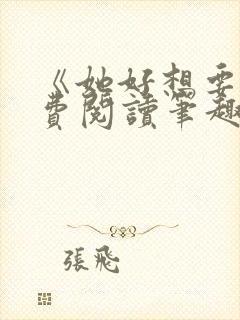 《她好想要
費閱讀筆趣
張飛